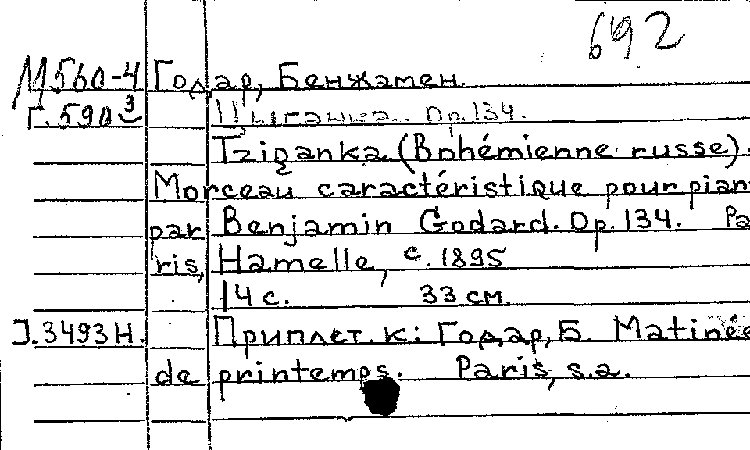 692
М560-4 Годар, Бенжамен.
Г.590³ Цыганка. Op.134.
Tziganka (Bohémienne russe).
Morceau caractéristique pour pian
par Benjamin Godard. Op.134. Pa
ris, Hamelle, c.1895
14 с. 33 см.
J.3493н. Приплет. к: Годар, Б. Matinée
de printemps. Paris, s.a.